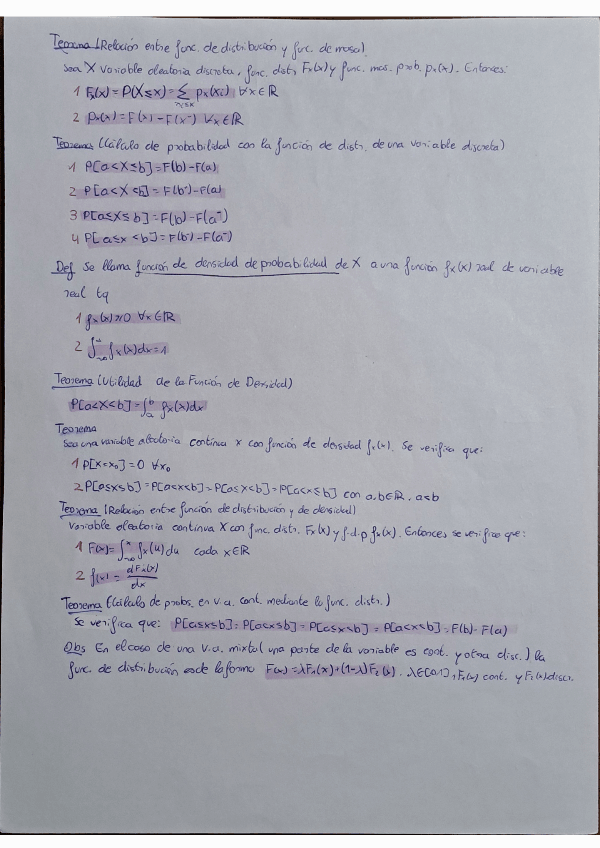 Teorema (Relación entre func. de distribución y func. de masa)
Sea X variable aleatoria discreta, func. distr. Fx(x) y func. mas. prob. px(x). Entonces:
1 Fx(x) = P(X≤x) = Σ px(xi) ∀x∈ℝ
xi≤x
2 px(x) = F(x) - F(x⁻) ∀x∈ℝ
Teorema (Cálculo de probabilidad con la función de distr. de una variable discreta)
1 P[a<X≤b] = F(b)-F(a)
2 P[a<X<b] = F(b⁻)-F(a)
3 P[a≤X≤b] = F(b)-F(a⁻)
4 P[a≤x<b] = F(b⁻)-F(a⁻)
Def Se llama función de densidad de probabilidad de X a una función fx(x) real de variable
real tq
1 fx(x)≥0 ∀x∈ℝ
2 ∫_{-∞}^{∞} fx(x)dx=1
Teorema (Utilidad de la Función de Densidad)
P[a<X<b] = ∫_a^b fx(x)dx
Teorema
Sea una variable aleatoria continua x con función de densidad fx(x). Se verifica que:
1 P[X=x₀]=0 ∀x₀
2 P[a≤x≤b] = P[a<x<b] = P[a≤x<b] = P[a<x≤b] con a,b∈ℝ, a<b
Teorema (Relación entre función de distribución y de densidad)
Variable aleatoria continua X con func. distr. Fx(x) y f.d.p fx(x). Entonces se verifica que:
1 F(x) = ∫_{-∞}^x fx(u)du cada x∈ℝ
2 f(x) = dFx(x)
dx
Teorema (Cálculo de probs. en v.a. cont. mediante la func. distr.)
Se verifica que: P[a≤x≤b] = P[a<x<b] = P[a≤x<b] = P[a<x≤b] = F(b)-F(a)
Obs En el caso de una v.a. mixta (una parte de la variable es cont. y otra disc.) la
func. de distribución es de la forma F(x) = λF₁(x)+(1-λ)F₂(x). λ∈[0,1], F₁(x) cont. y F₂(x) discr.